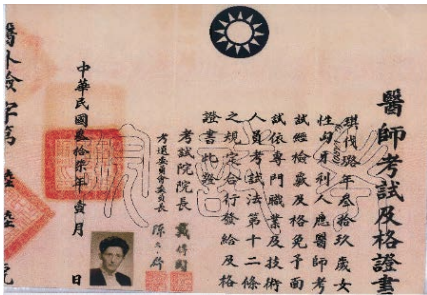 醫師考試及格證書
琪伐璐年叁拾玖歲女
性匈牙利人應醫師考
試經檢覈及格免予面
試依專門職業及技術
人員考試法第十二條
之規定合行發給及格
證書此證
考試院院長 戴傳賢
考選委員會委員長 陳大齊
中華民國叁拾柒年 月 日
醫外檢字第 陸 陸 號